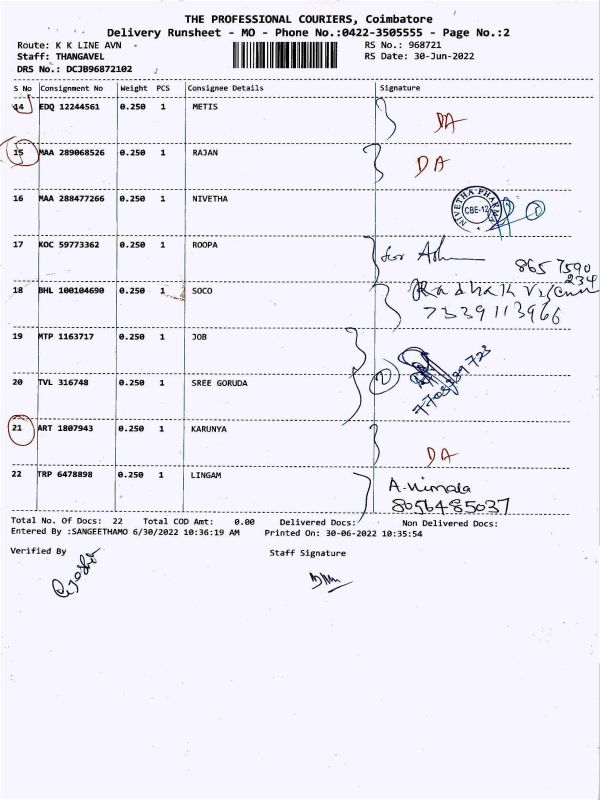 THE PROFESSIONAL COURIERS, Coimbatore
Delivery Runsheet - MO - Phone No.:0422-3505555 - Page No.:2
Route: K K LINE AVN RS No.: 968721
Staff: THANGAVEL RS Date: 30-Jun-2022
DRS No.: DCJB96872102
S No Consignment No Weight PCS Consignee Details Signature
14 EDQ 12244561 0.250 1 METIS DA
15 MAA 289068526 0.250 1 RAJAN DA
16 MAA 288477266 0.250 1 NIVETHA NIVETHA PHARMA CBE-12
17 KOC 59773362 0.250 1 ROOPA for
8657590
234
18 BHL 100104690 0.250 1 SOCO
7339113966
19 MTP 1163717 0.250 1 JOB
20 TVL 316748 0.250 1 SREE GORUDA
21 ART 1807943 0.250 1 KARUNYA DA
22 TRP 6478898 0.250 1 LINGAM A. Nimala
8056485037
Total No. Of Docs: 22 Total COD Amt: 0.00 Delivered Docs: Non Delivered Docs:
Entered By :SANGEETHAMO 6/30/2022 10:36:19 AM Printed On: 30-06-2022 10:35:54
Verified By Staff Signature